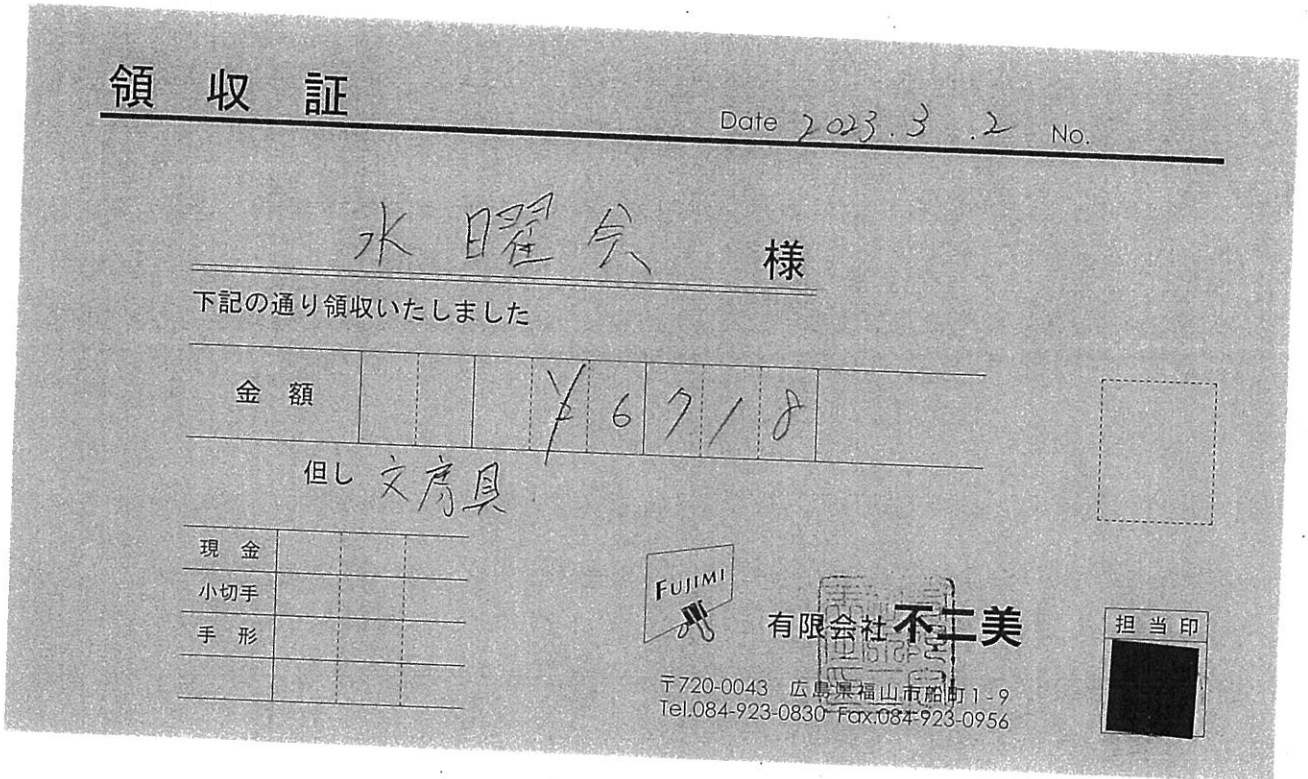 領収証
Date 2023.3.2 No.
水曜会 様
下記の通り領収いたしました
金額 ¥6718
但し 文房具
現金
小切手
手形
FUJIMI
有限会社 不二美
担当印
〒720-0043 広島県福山市船町1-9
Tel.084-923-0830 Fax.084-923-0956